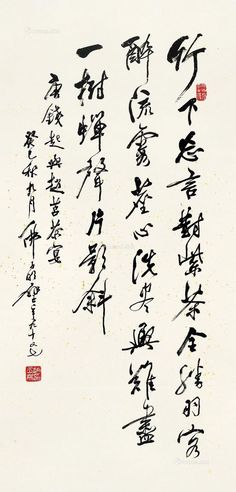 竹下忘言對紫茶全勝羽客
醉流霞塵心洗盡興難盡
一樹蟬聲片影斜
唐錢起與趙莒茶宴
癸巳秋九月佛